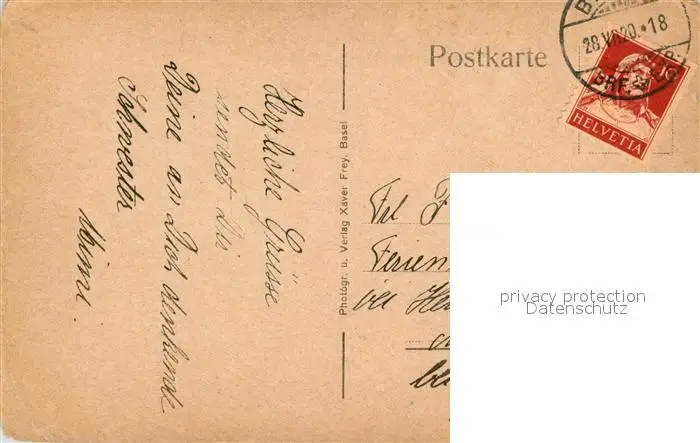 Postkarte
28.VII.20.*18
BRF.
HELVETIA
Photogr. u. Verlag Xaver Frey, Basel
Herzliche Grüsse
sendet Dir
Deine an Dich denkende
Schwester
Mimi.
Frl
Ferien
bei
privacy protection
Datenschutz